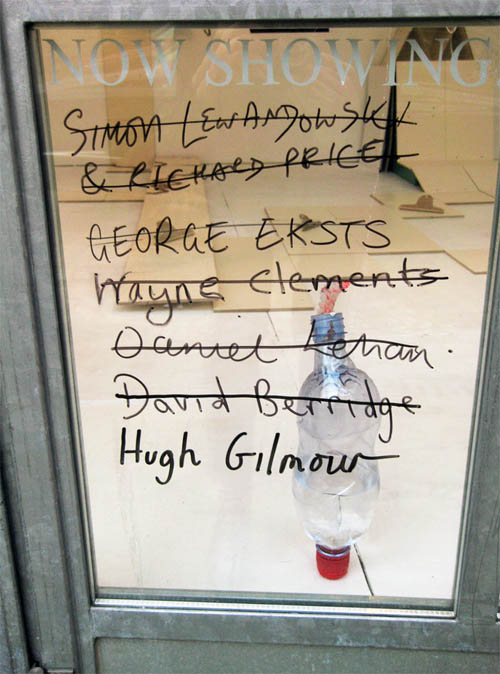 NOW SHOWING
SIMON LEWANDOWSKI
& RICHARD PRICE
GEORGE EKSTS
Wayne Clements
Daniel Lehan.
David Berridge
Hugh Gilmour